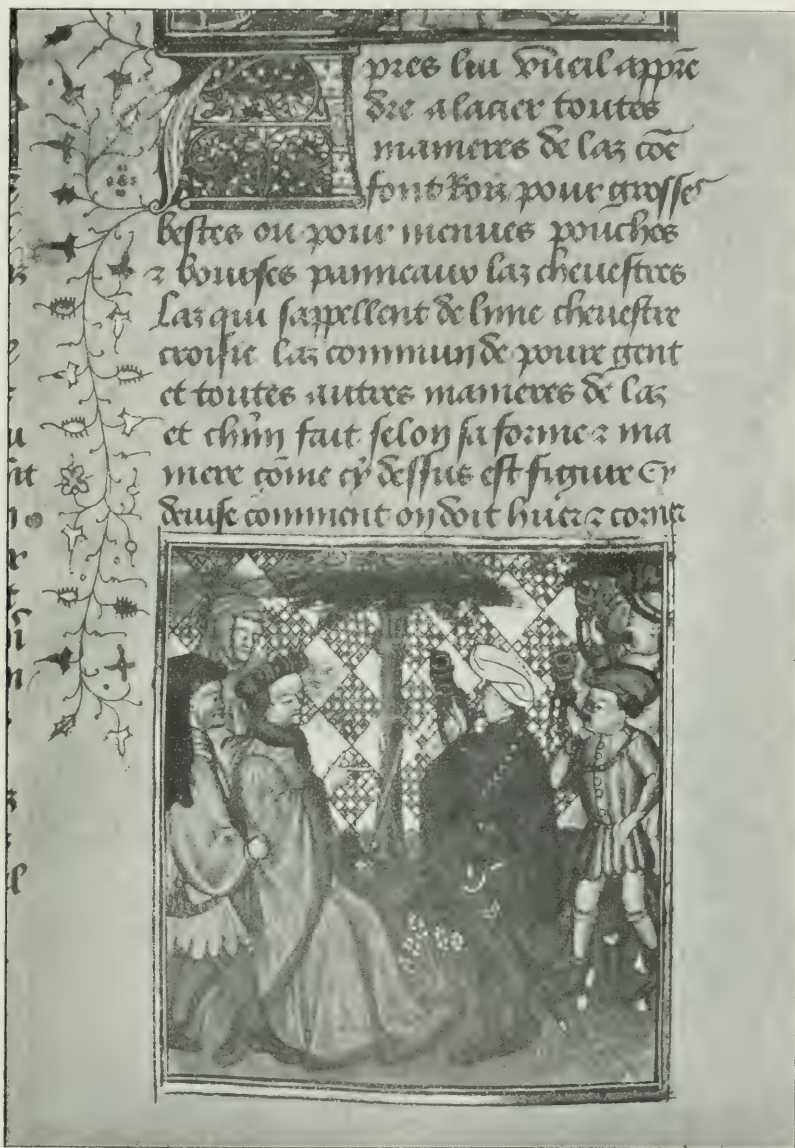 Apres lui vueil apprē
dre a lacier toutes
manieres de laz cōe
font Roiz pour grosses
bestes ou pour menues pouches
⁊ bourses panneaux laz cheuestres
Laz qui sappellent de lune cheuestre
croisie laz commun de poure gent
et toutes autres manieres de laz
et chūn fait selon sa forme ⁊ ma
niere cōme cy dessus est figure Cy
deuise comment on doit huer ⁊ corner